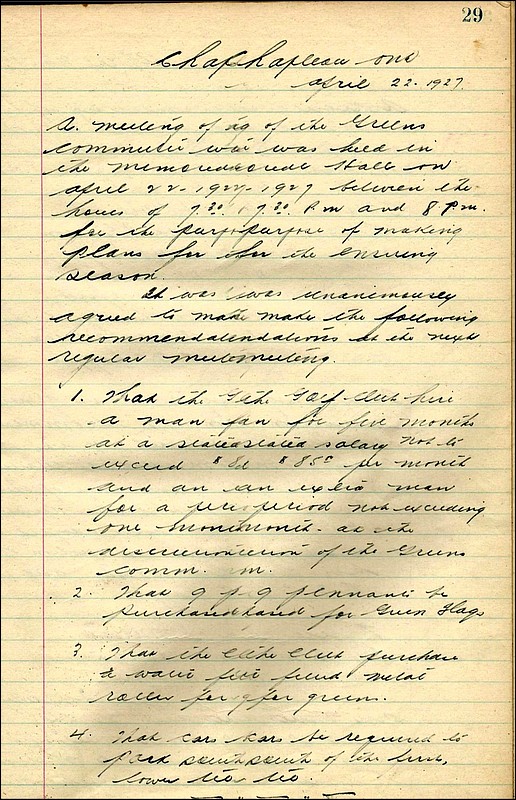 29
ChapChapleau Ont
April 22. 1927.
A. meeting of ng of the Greens
Committee was was held in
the Memorial Hall on
April 22. 1927. 1927 between the
hours of 7.30 7.30 P.m and 8 P.m.
for the purppurpose of making
plans for for the Ensuing
season.
It was was unanimously
agreed to make make the following
recommendatendations at the next
regular meetmeeting.
1. That the G the Golf Club hire
a man for five months
at a statedstated salary not to
exceed $85 $85.00 per month
and an an extra man
for a pereperiod not exceeding
one monthmonth. at the
discretion of the Greens
Comm. m.
2. That 9 p. 9 pennants be
purchasedhased for Green Flags
3. That the Clthe Club purchase
a water filled metal
roller for g for greens.
4. That cars kars be required to
park south of the
lower tee tee.